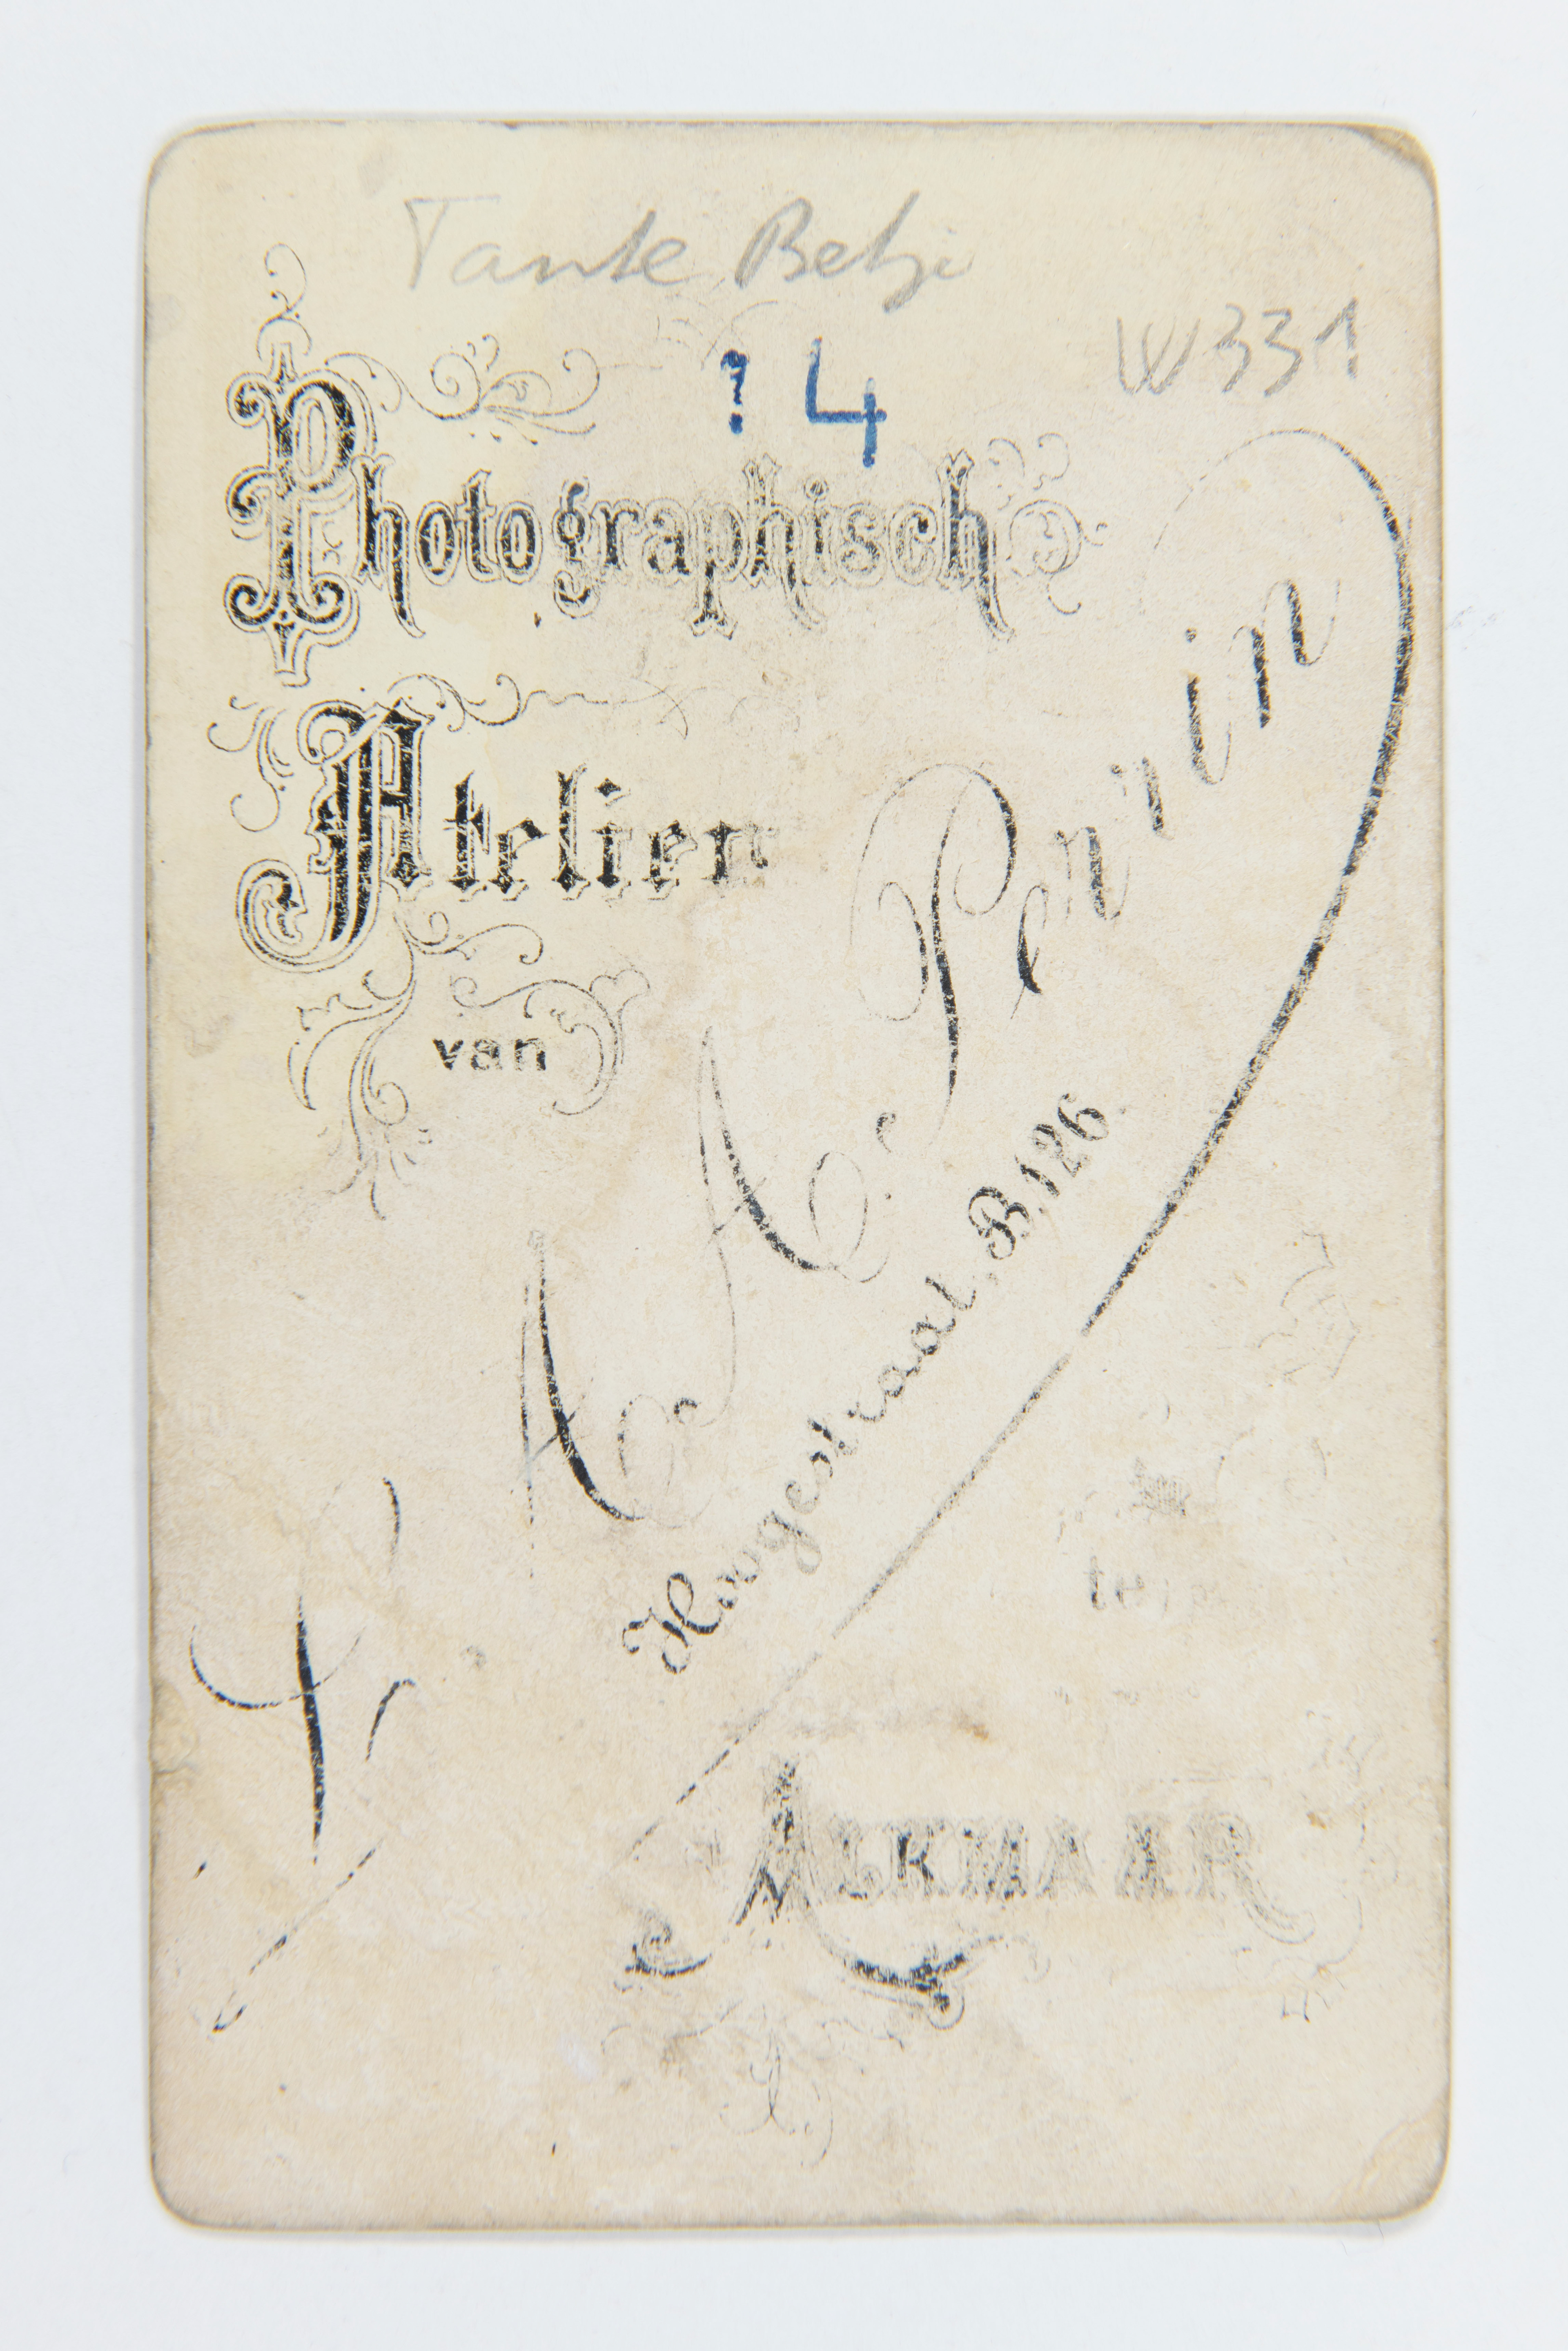 Tante Betje
W331
? 4
Photographisch
Atelier
van
F. A. A. Perrin
Hoogestraat, B.126.
ALKMAAR